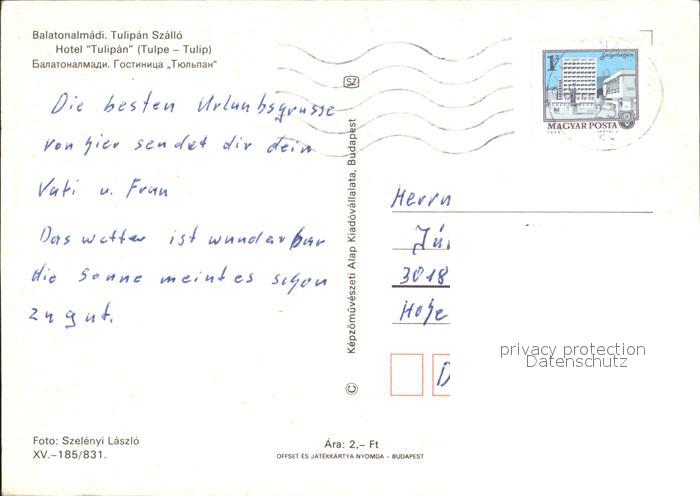 Balatonalmádi. Tulipán Szálló
Hotel "Tulipán" (Tulpe – Tulip)
Балатоналмади. Гостиница „Тюльпан"
Die besten Urlaubsgrüsse
von hier sendet dir dein
Vati u. Frau
Das wetter ist wunderbar
die Sonne meint es schon
zu gut.
Foto: Szelényi László
XV.–185/831.
SZ
© Képzőművészeti Alap Kiadóvállalata, Budapest
Ára: 2,– Ft
OFFSET ÉS JÁTÉKKÁRTYA NYOMDA – BUDAPEST
1Ft
Salgótarján
MAGYAR POSTA
Herrn
3018
D
privacy protection
Datenschutz